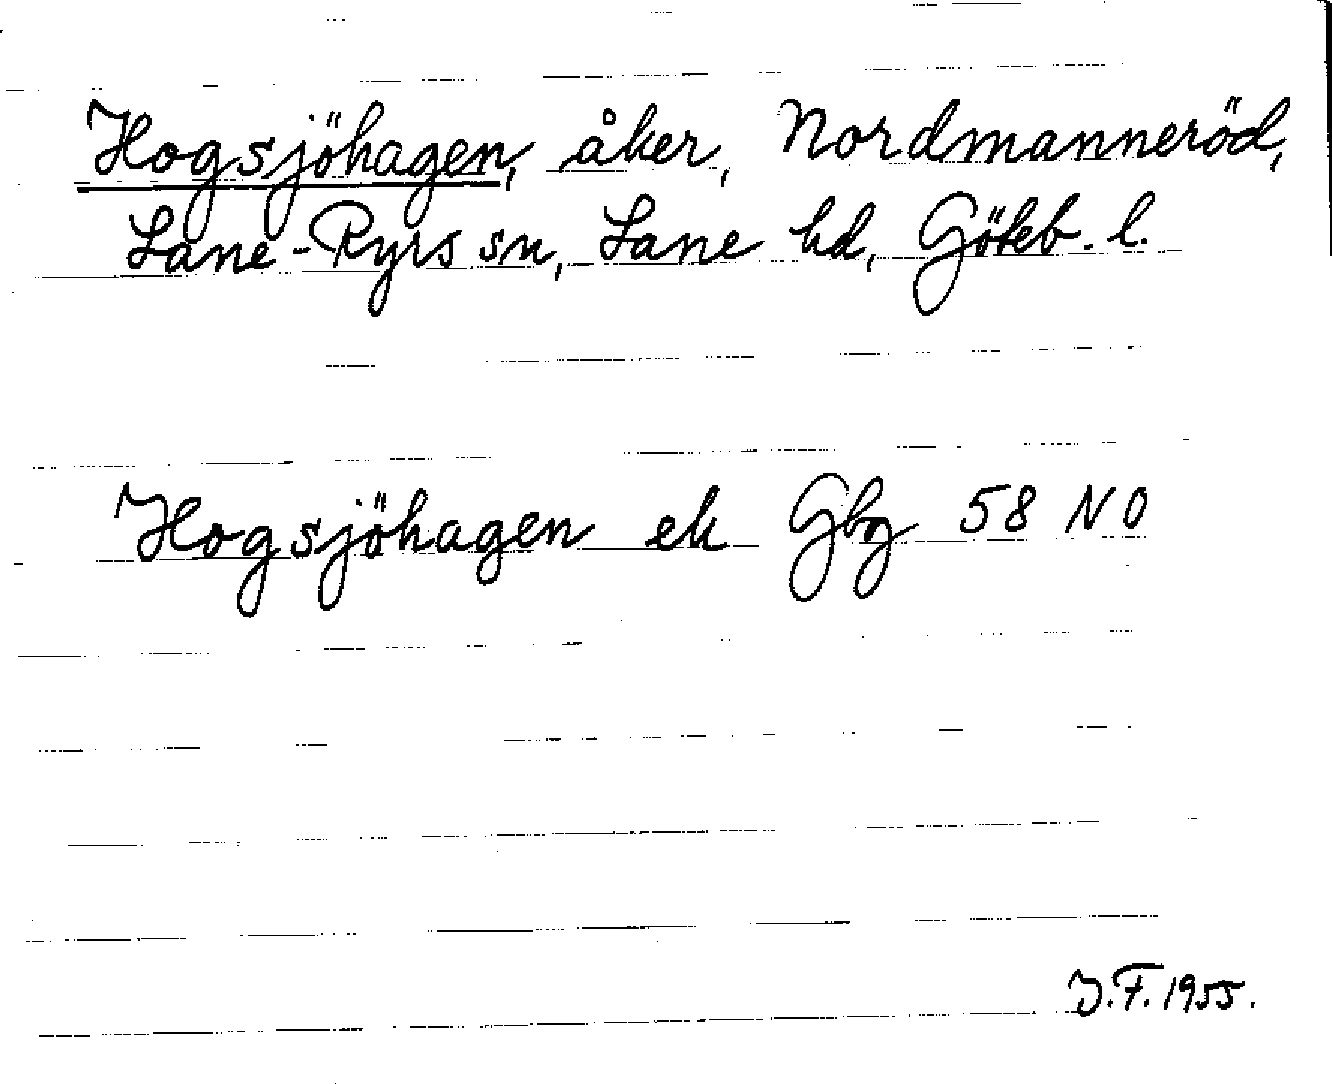 Hogsjöhagen, åker, Nordmanneröd,
Lane-Ryrs sn, Lane hd, Göteb. l.
Hogsjöhagen ek Gbg 58 NO
J.F. 1955.